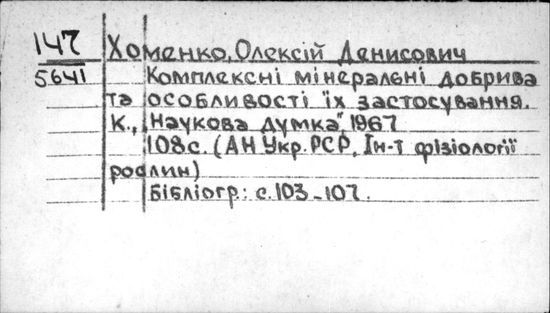 147 Хоменко, Олексій Денисович
5641 Комплексні мінеральні добрива
та особливості їх застосування.
К., "Наукова думка", 1967
108с. (АН Укр. РСР, Ін-т фізіології
рослин)
Бібліогр.: с. 103-107.